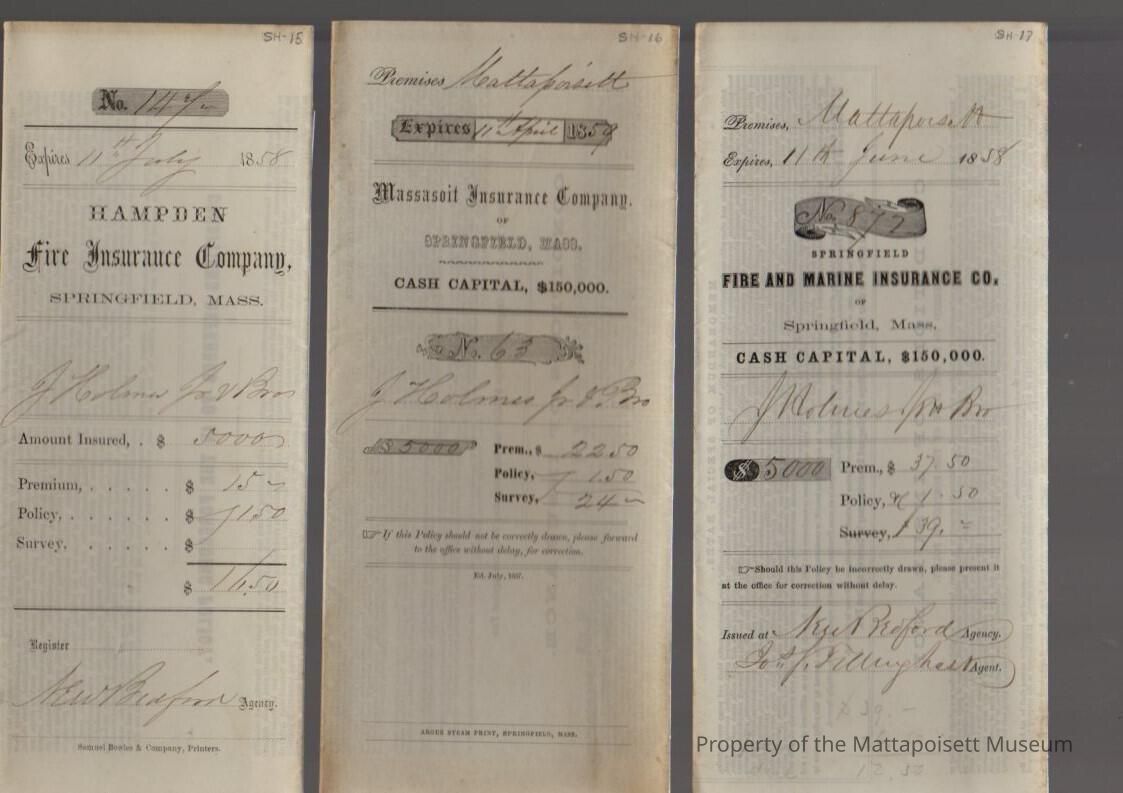 SH-15
No. 147
Expires 11th July 1858
HAMPDEN
Fire Insurance Company,
SPRINGFIELD, MASS.
J Holmes Jr & Bros
Amount Insured, . $ 5000
Premium, . . . . . $ 15
Policy, . . . . . . $ 1.50
Survey, . . . . . $
$ 16.50
Register
New Bedford Agency.
Samuel Bowles & Company, Printers.
SH-16
Premises Mattapoisett
Expires 11th April 1859
Massasoit Insurance Company,
OF
SPRINGFIELD, MASS.
CASH CAPITAL, $150,000.
No. 63
J Holmes jr & Bro
$ 5000
Prem., $ 22 50
Policy, 1.50
Survey, 24
☞ If this Policy should not be correctly drawn, please forward
to the office without delay, for correction.
Ed. July, 1857.
ARGUS STEAM PRINT, SPRINGFIELD, MASS.
SH-17
Premises, Mattapoisett
Expires, 11th June 1858
No. 877
SPRINGFIELD
FIRE AND MARINE INSURANCE CO.
OF
Springfield, Mass.
CASH CAPITAL, $150,000.
J Holmes Jr & Bro
$ 5000
Prem., $ 37.50
Policy, 1.50
Survey, $ 39.
☞ Should this Policy be incorrectly drawn, please present it
at the office for correction without delay.
Issued at New Bedford Agency.
Tillinghast Agent.
$ 39.-
Property of the Mattapoisett Museum